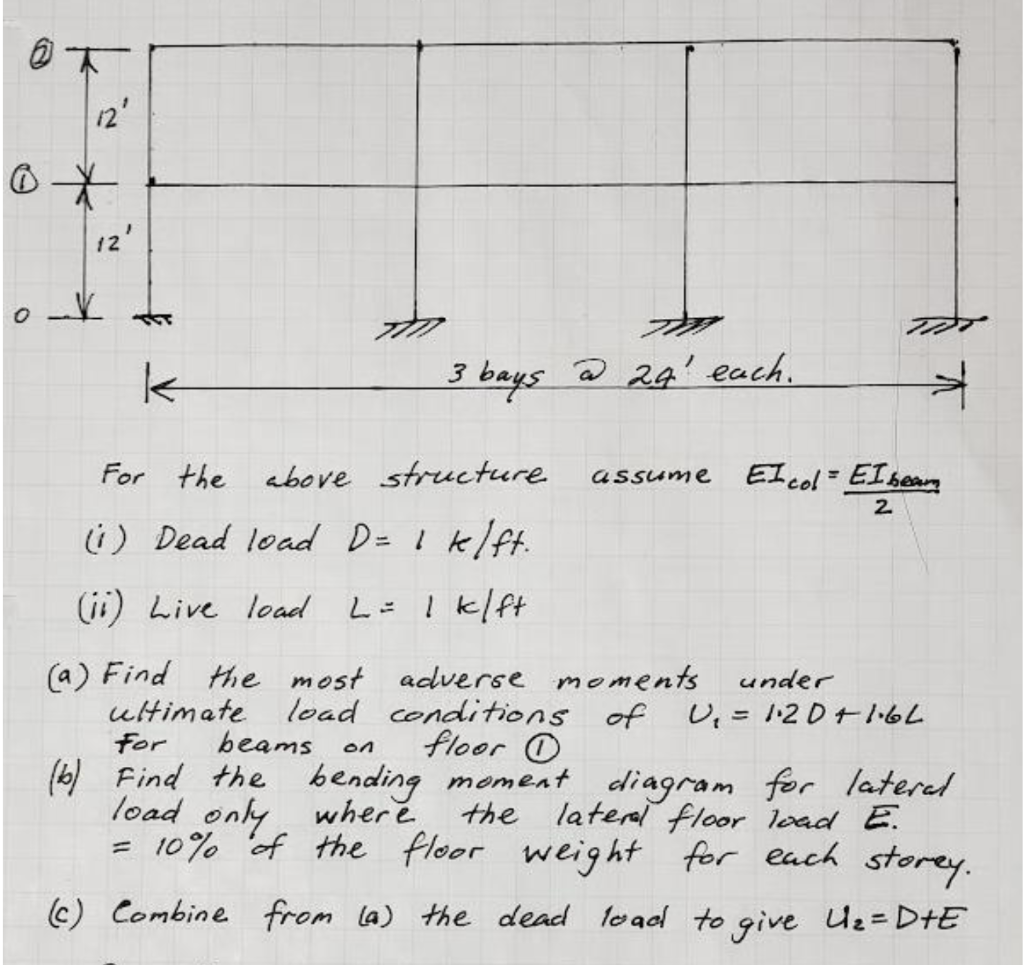 ②
12'
①
12'
0
3 bays @ 24' each.
For the above structure assume EIcol = EIbeam
2
(i) Dead load D = 1 k/ft.
(ii) Live load L = 1 k/ft
(a) Find the most adverse moments under
ultimate load conditions of U₁ = 1.2D + 1.6L
for beams on floor ①
(b) Find the bending moment diagram for lateral
load only where the lateral floor load E.
= 10% of the floor weight for each storey.
(c) Combine from (a) the dead load to give U₂ = D+E